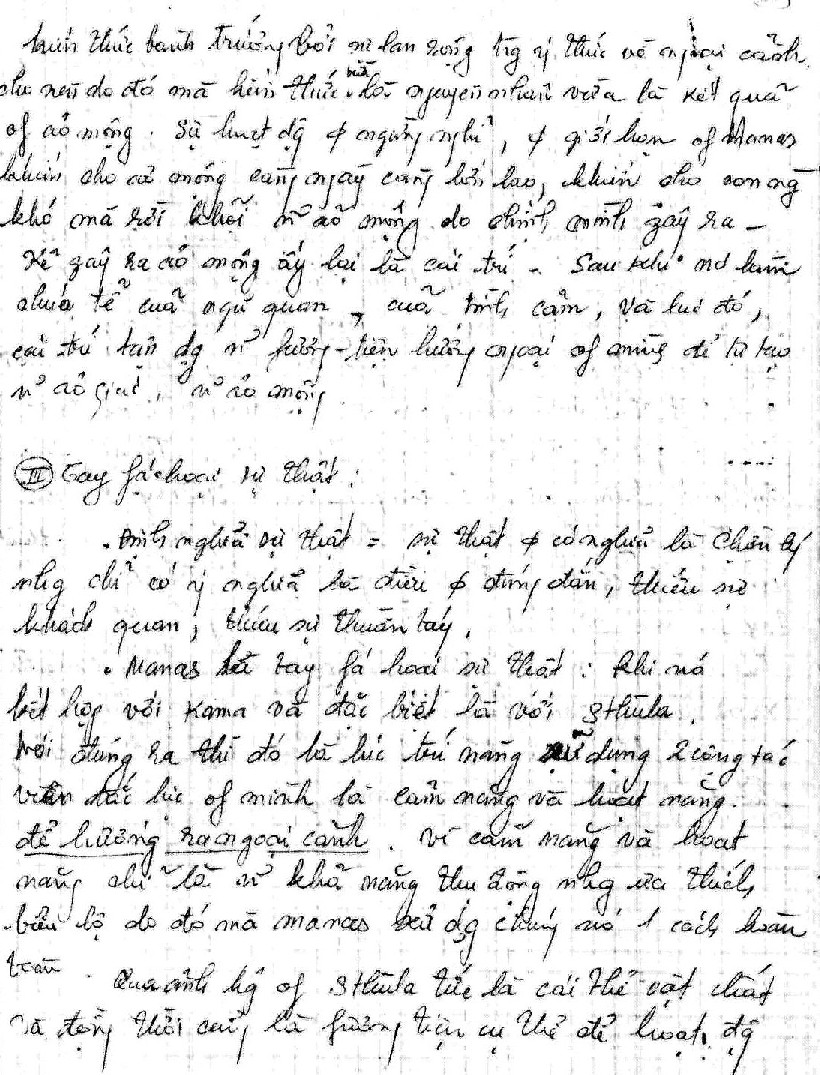 kiến thức bành trướng bởi sự lan rộng trg ý thức về ngoại cảnh
cho nên do đó mà kiến thức vừa là nguyên nhân vừa là kết quả
of ảo mộng. Sự hoạt dg ϕ ngừng nghỉ, ϕ giới hạn of Manas
khiến cho ảo mộng càng ngày càng lớn lao, khiến cho con ng
khó mà rời khỏi ảo mộng do chính mình gây ra -
Kẻ gây ra ảo mộng ấy lại là cái trí. Sau khi nó làm
chúa tể của ngũ quan, của tình cảm, và lúc đó,
cái trí tận dg fương-tiện hướng ngoại of mình để tự tạo
ảo giác, ảo mộng
III Tay fá hoại sự thật:
. Định nghĩa sự thật = sự thật ϕ có nghĩa là chân lý
nhg chỉ có ý nghĩa là điều ϕ đúng đắn, thiếu sự
khách quan, thiếu sự thuần túy.
. Manas là tay fá hoại sự thật: khi nó
kết hợp với Kama và đặc biệt là với Sthula.
Nói đúng ra thì đó là lúc trí năng sử dụng 2 cộng tác
viên đắc lực of mình là cảm năng và hoạt năng.
để hướng ra ngoại cảnh. Vì cảm năng và hoạt
năng chỉ là khả năng thụ động nhg ưa thích
biểu lộ do đó mà manas sử dg chúng nó 1 cách hoàn
toàn. Qua ảnh hg of Sthula tức là cái thể vật chất
và đồng thời cũng là fương tiện cụ thể để hoạt dg